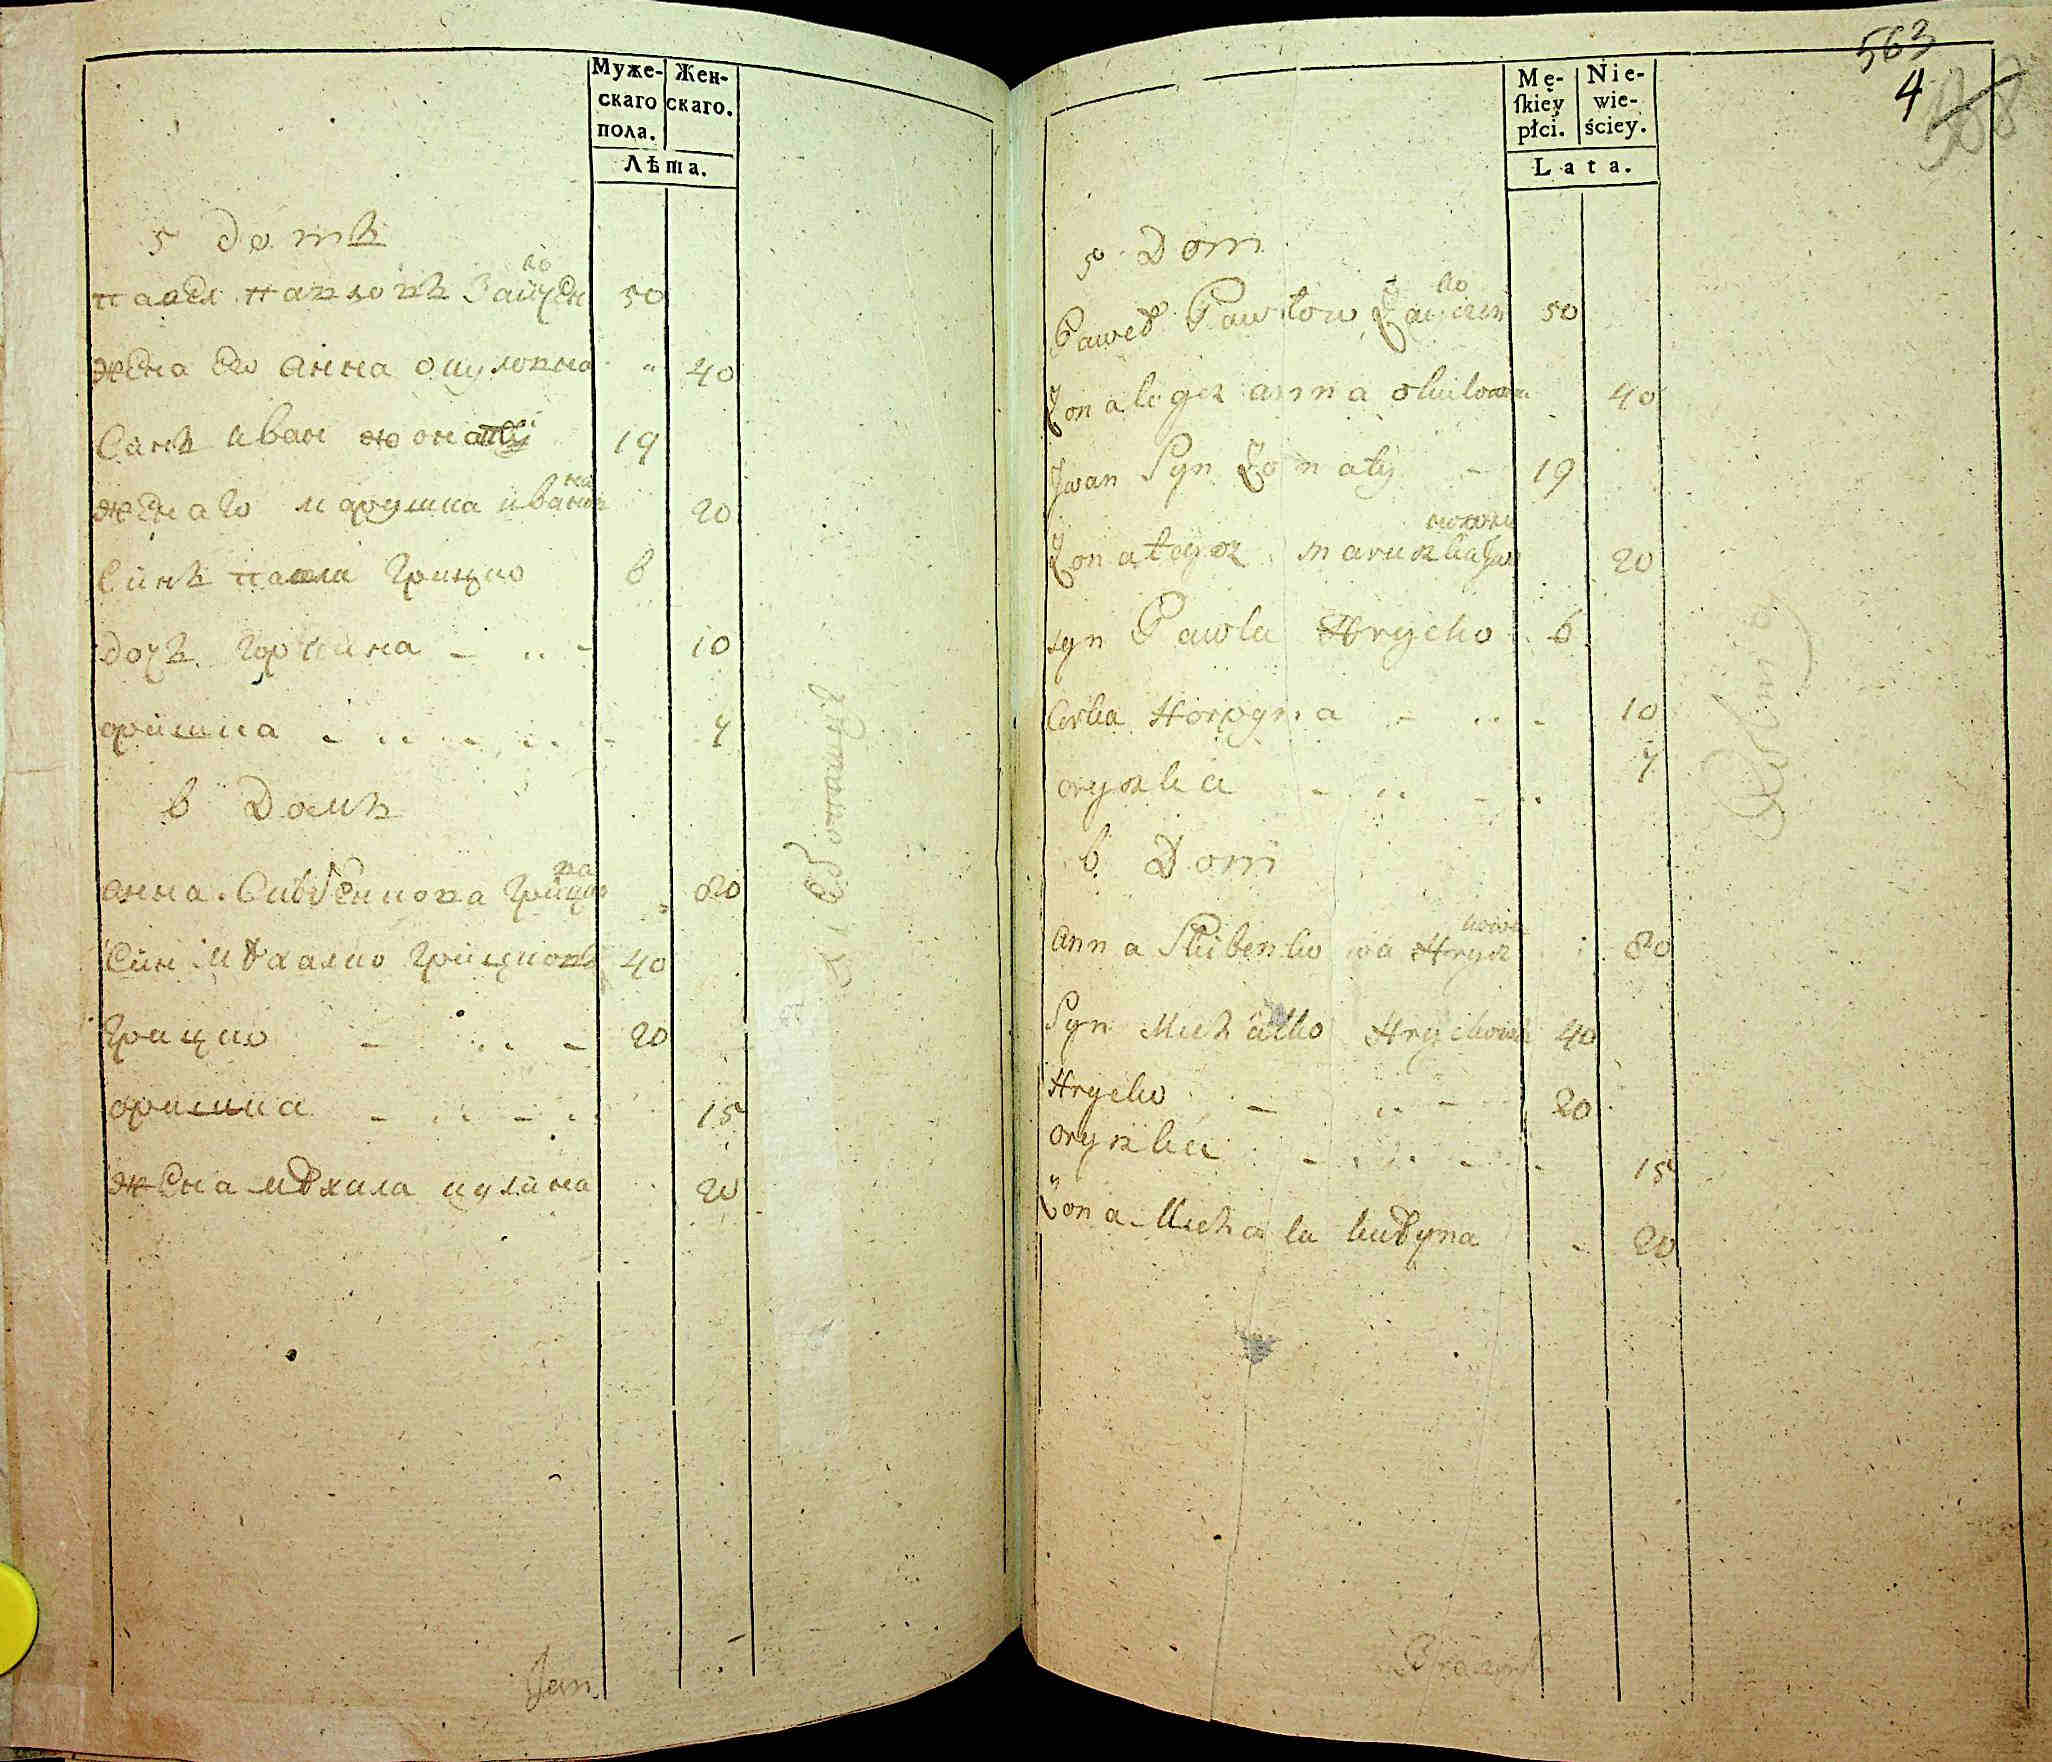 Муже-
скаго
пола.
Жен-
скаго.
Лѣта.
5 домъ
Павел Павловъ Зайчен
ко
50
жена его Анна
40
Синъ Иван жонатй
19
жена го марушка иванов
на
20
Синъ Павла Грицко
6
дочъ Горпина
10
оришка
7
6 Домъ
Анна
Грицков
ва
80
Син Михалко Грицковъ
40
Грицко
20
оришка
15
жена Михала кулина
20
Jan
563
4
388
Mę-
ſkiey
płci.
Nie-
wie-
ściey.
Lata.
5 Dom
Paweł Pawłow Zaiczen
ko
50
Żona Iego anna
40
Jwan Syn Żonaty
19
Żonatego maruszka Jwa
nowna
20
syn Pawla Hrycko
6
Corka Horpyna
10
oryszka
7
6 Dom
anna
Hryc
kowa
80
Syn Michalko Hryckow
40
Hrycko
20
oryszka
15
Żona Michala kulyna
20